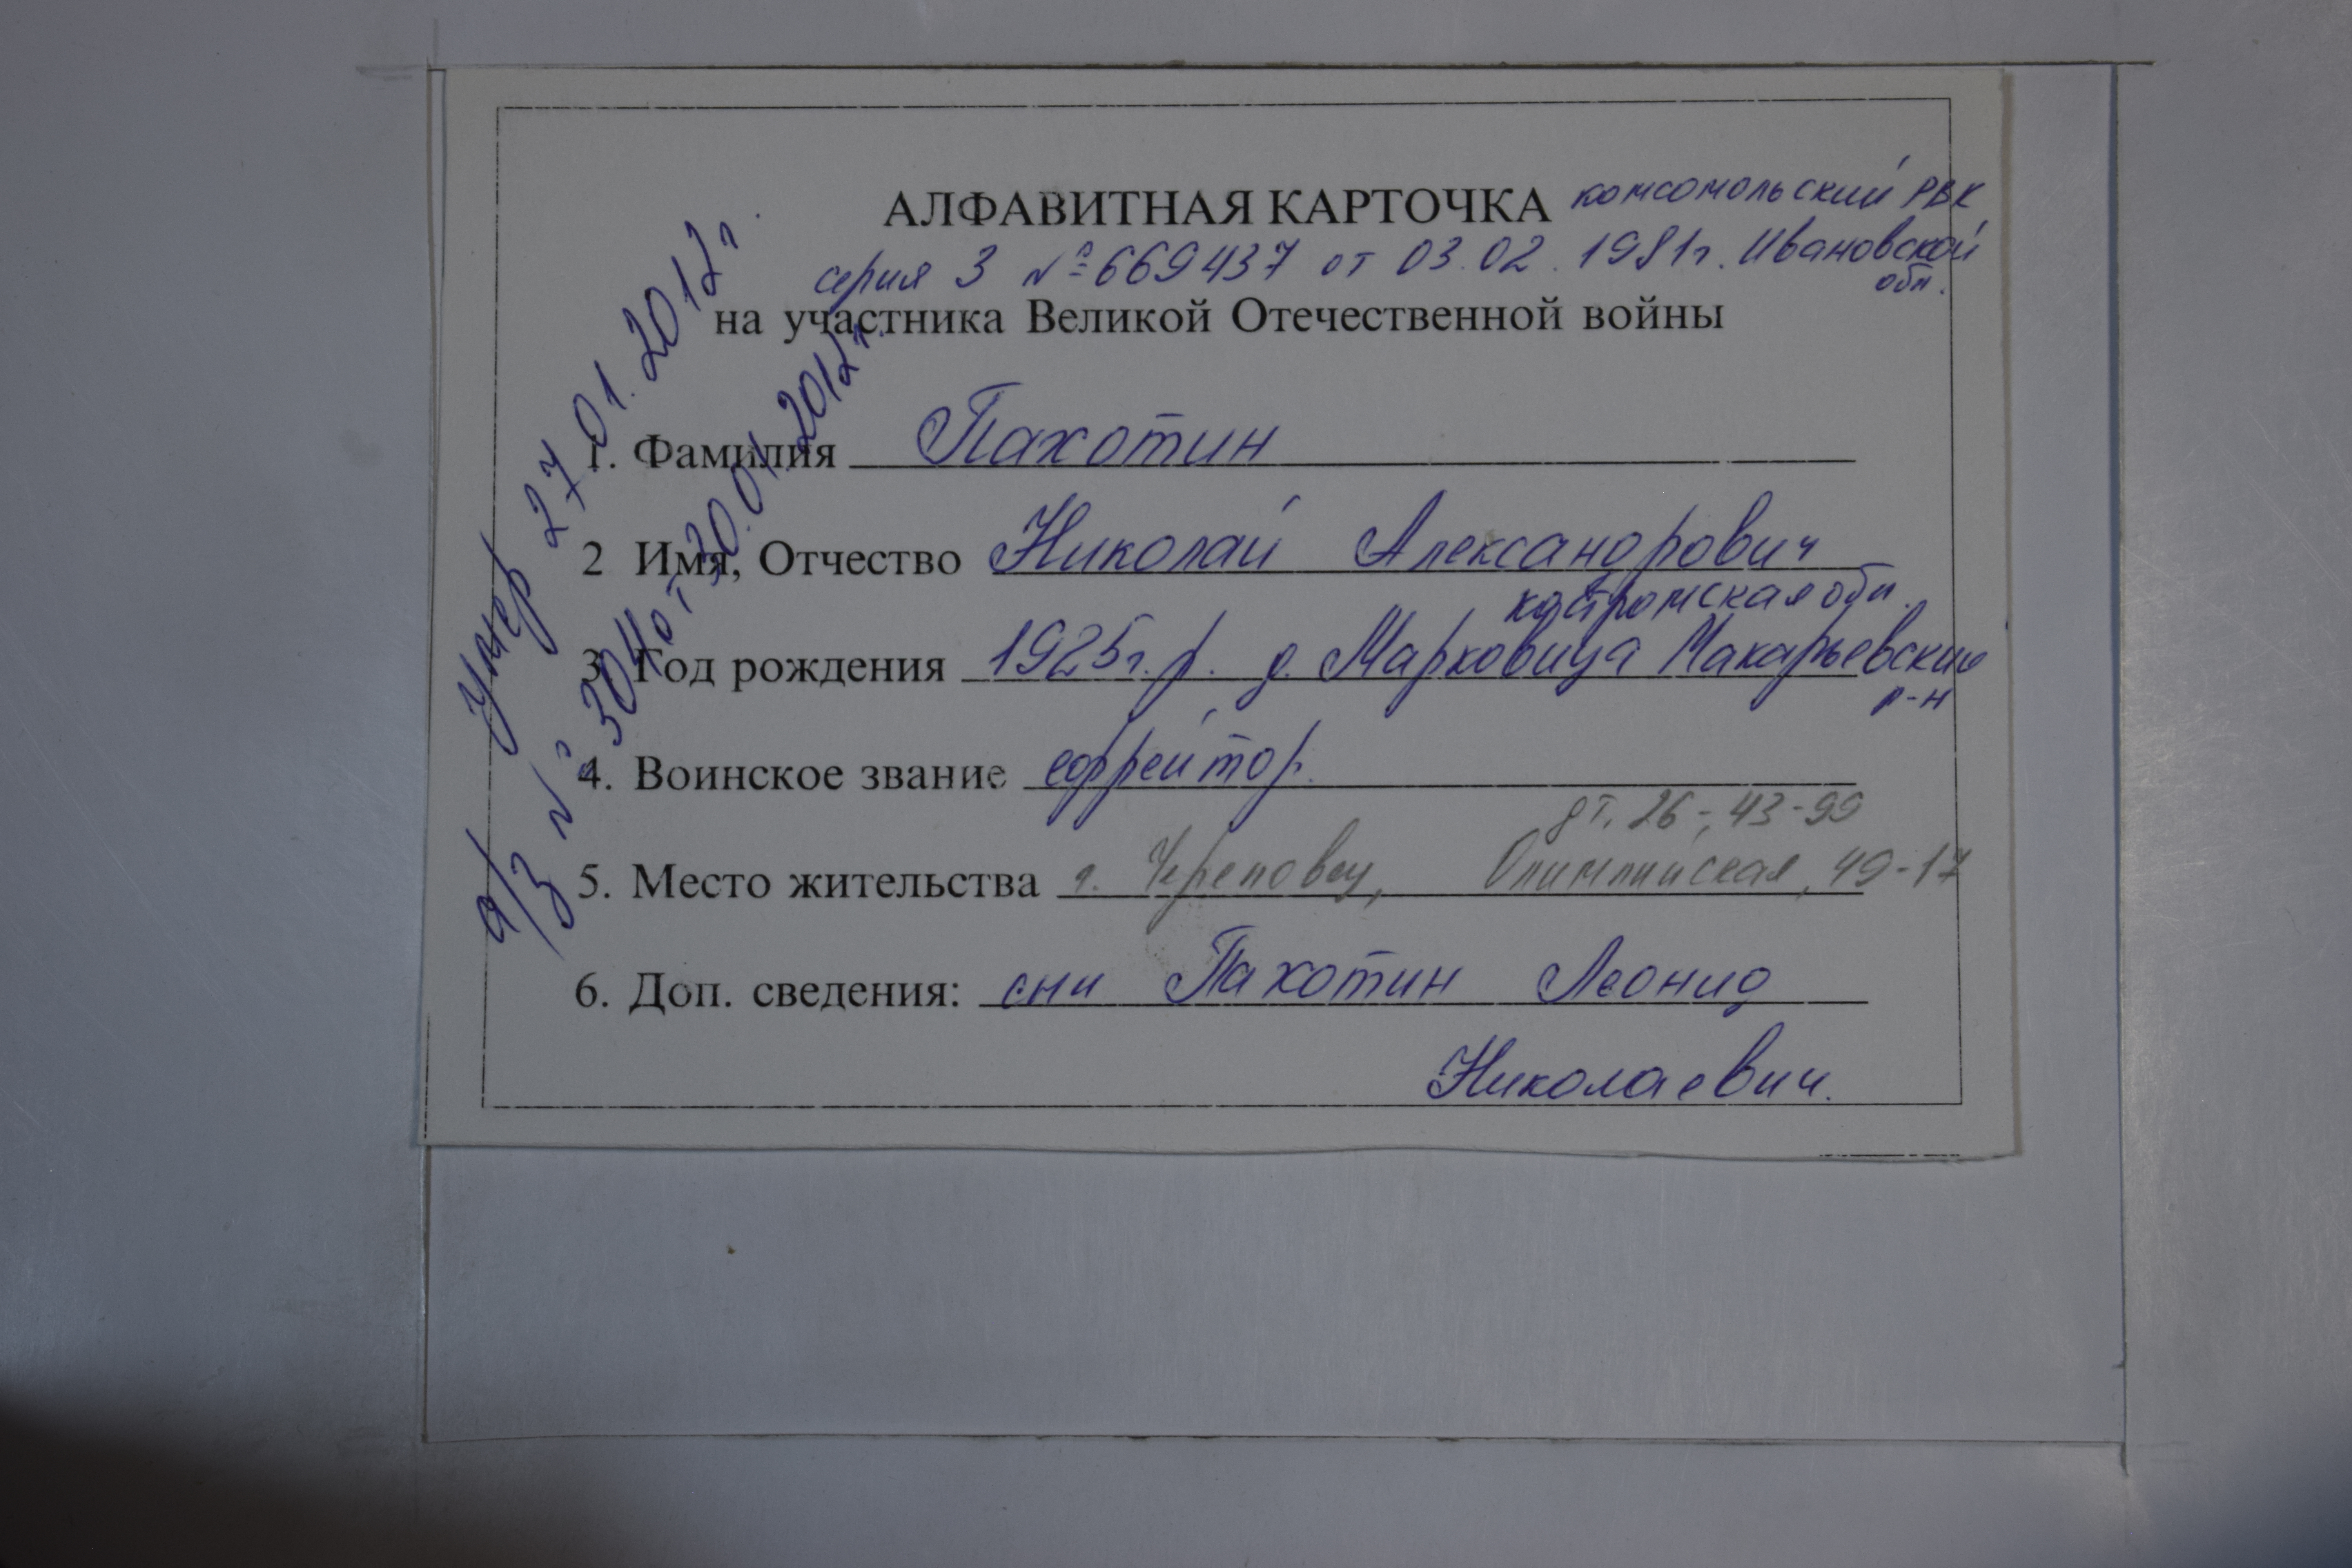 АЛФАВИТНАЯ КАРТОЧКА комсомольский РВК
серия 3 № 669437 от 03.02.1981г. Ивановской
обл.
на участника Великой Отечественной войны
умер 27.01.2012г.
а/з № 304 от 30.01.2012г.
1. Фамилия Пахотин
2 Имя, Отчество Николай Александрович
костромская обл.
3. Год рождения 1925г.р. д. Марковица Макарьевский
р-н
4. Воинское звание ефрейтор.
дт. 26-43-99
5. Место жительства г. Череповец, Олимпийская, 49-17
6. Доп. сведения: Пахотин Леонид
Николаевич.